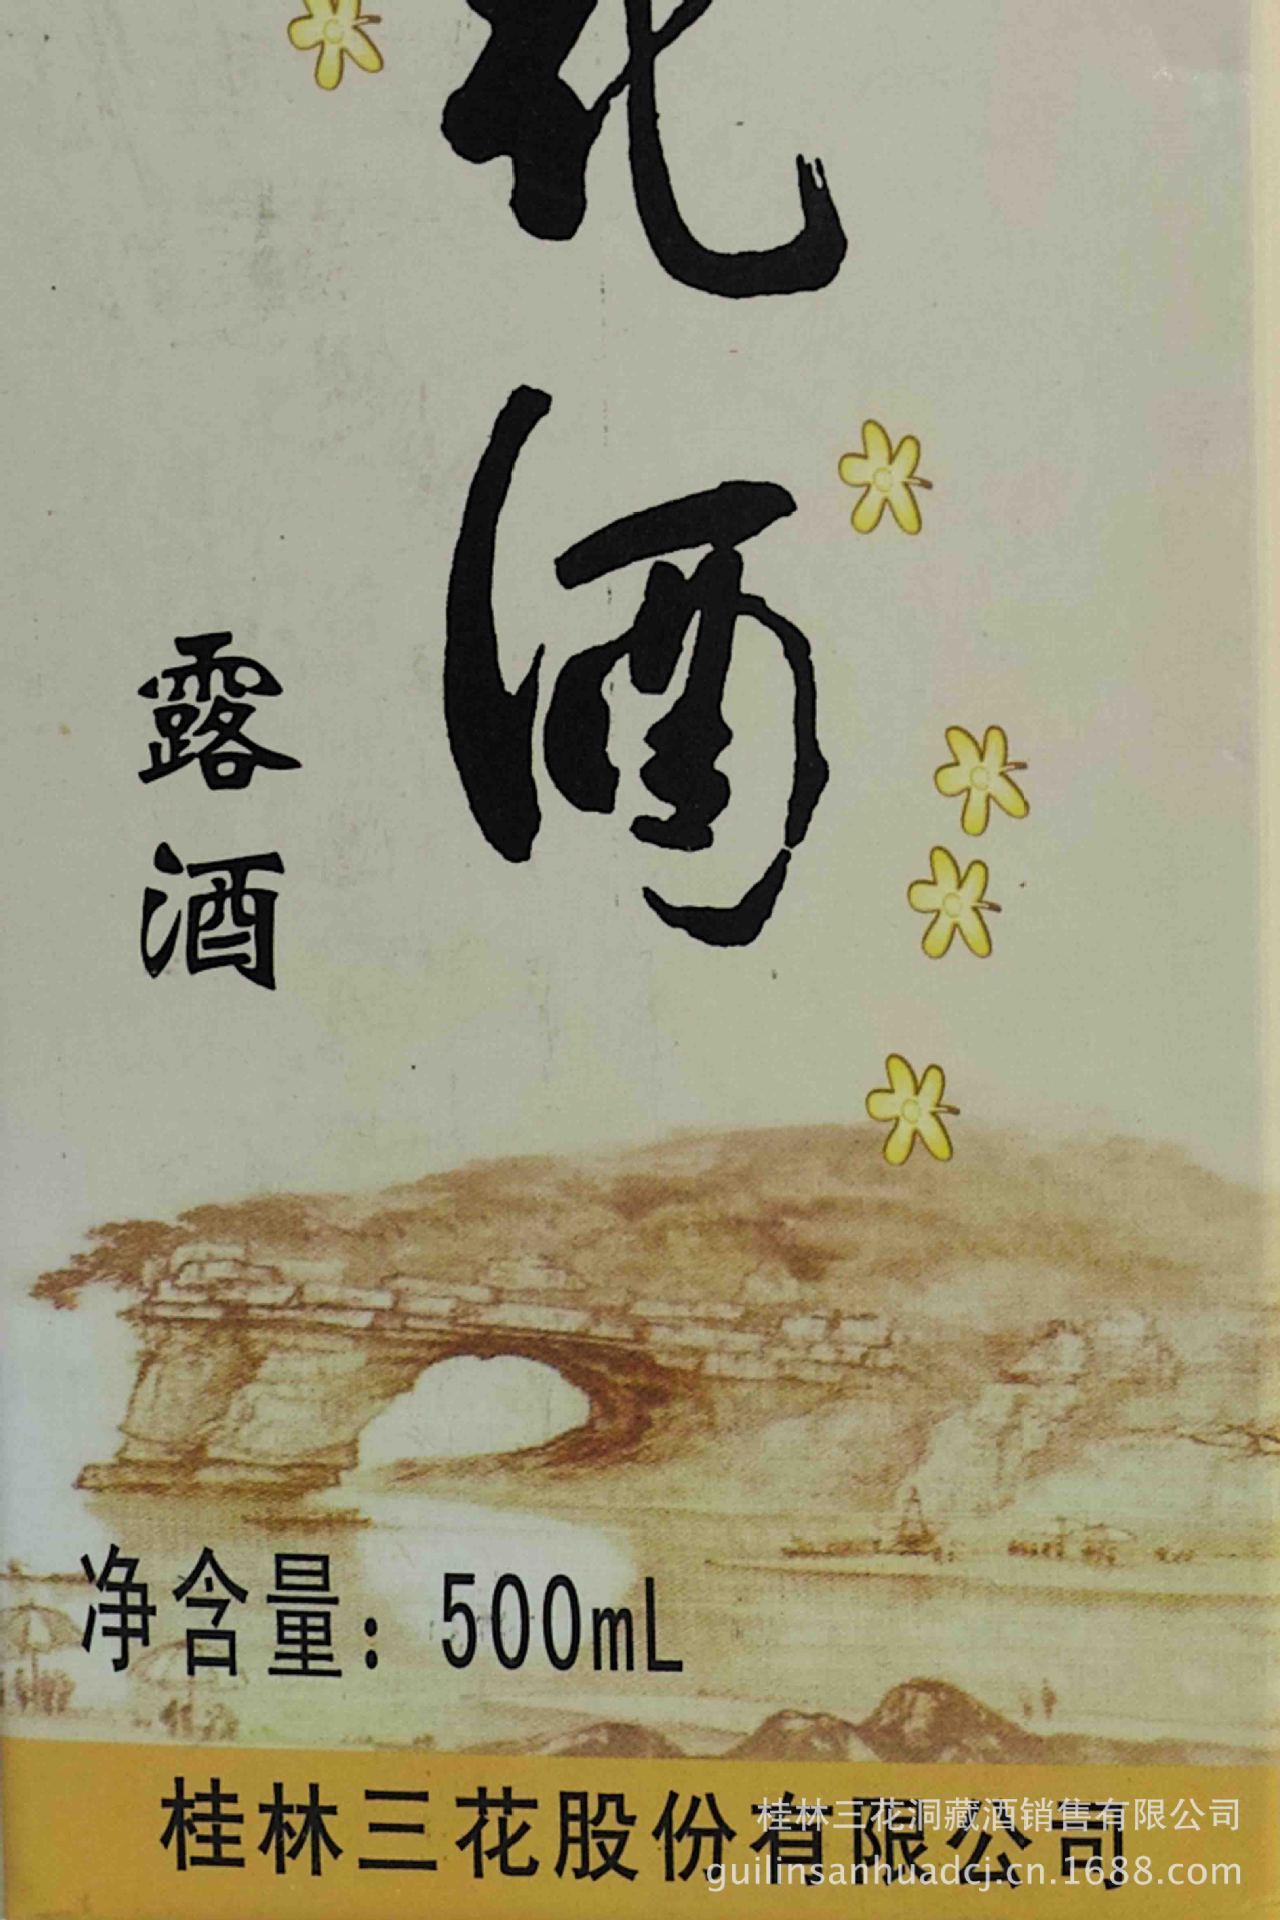 花
酒
露
酒
净含量：500mL
桂林三花股份有限公司
桂林三花洞藏酒销售有限公司
guilinsanhuadcj.cn.1688.com